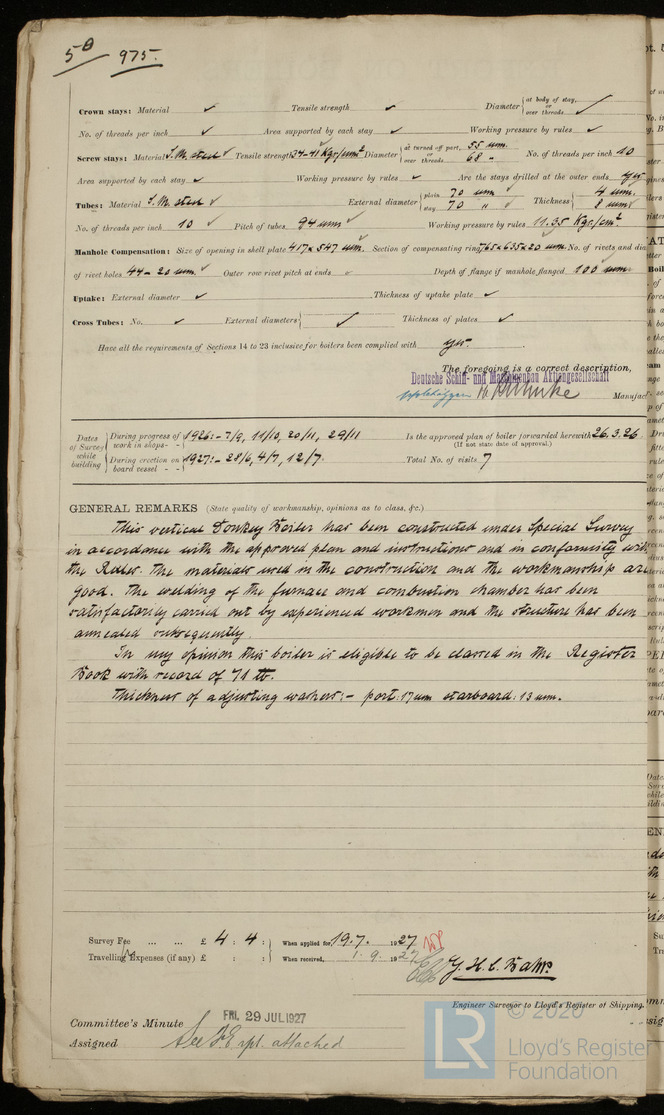 5a 975.
Crown stays: Material ✓ Tensile strength ✓ Diameter { at body of stay, or over threads ✓
No. of threads per inch ✓ Area supported by each stay ✓ Working pressure by rules ✓
Screw stays: Material S.M. steel ✓ Tensile strength 34-41 Kgr/mm² Diameter { at turned off part, 55 mm. or over threads 68 " No. of threads per inch 10
Area supported by each stay ✓ Working pressure by rules ✓ Are the stays drilled at the outer ends yes
Tubes: Material S.M. steel ✓ External diameter { plain 70 mm stay 70 " ✓ Thickness { 4 mm. 8 mm ✓
No. of threads per inch 10 ✓ Pitch of tubes 94 mm ✓ Working pressure by rules 11.35 Kgr/cm².
Manhole Compensation: Size of opening in shell plate 417 x 547 mm. Section of compensating ring 765 x 635 x 20 mm. No. of rivets and dia
of rivet holes 44 - 20 mm. ✓ Outer row rivet pitch at ends ✓ Depth of flange if manhole flanged 100 mm.
Uptake: External diameter ✓ Thickness of uptake plate ✓
Cross Tubes: No. ✓ External diameters { ✓ Thickness of plates ✓
Have all the requirements of Sections 14 to 23 inclusive for boilers been complied with yes.
The foregoing is a correct description,
Deutsche Schiff- und Maschinenbau Aktiengesellschaft
Manufac
Dates of Survey while building { During progress of work in shops - - 1926:- 7/9, 11/10, 20/11, 29/11 Is the approved plan of boiler forwarded herewith 26.3.26.
(If not state date of approval.)
During erection on board vessel - - 1927:- 28/6, 4/7, 12/7. Total No. of visits 7
GENERAL REMARKS (State quality of workmanship, opinions as to class, &c.)
This vertical Donkey Boiler has been constructed under Special Survey
in accordance with the approved plan and instructions and in conformity with
the Rules. The materials used in the construction and the workmanship are
good. The welding of the furnace and combustion chamber has been
satisfactorily carried out by experienced workmen and the structure has been
annealed subsequently.
In my opinion this boiler is eligible to be classed in the Register
Book with record of 71 lb.
Thickness of adjusting washers:- port: 17 mm starboard: 13 mm.
Survey Fee ... ... £ 4 : 4 : When applied for, 19.7. 1927
Travelling Expenses (if any) £ : : When received, 1.9. 1927
Engineer Surveyor to Lloyd's Register of Shipping.
Committee's Minute FRI. 29 JUL 1927
Assigned See F.E. rpt. attached
© 2020
LR Lloyd's Register
Foundation